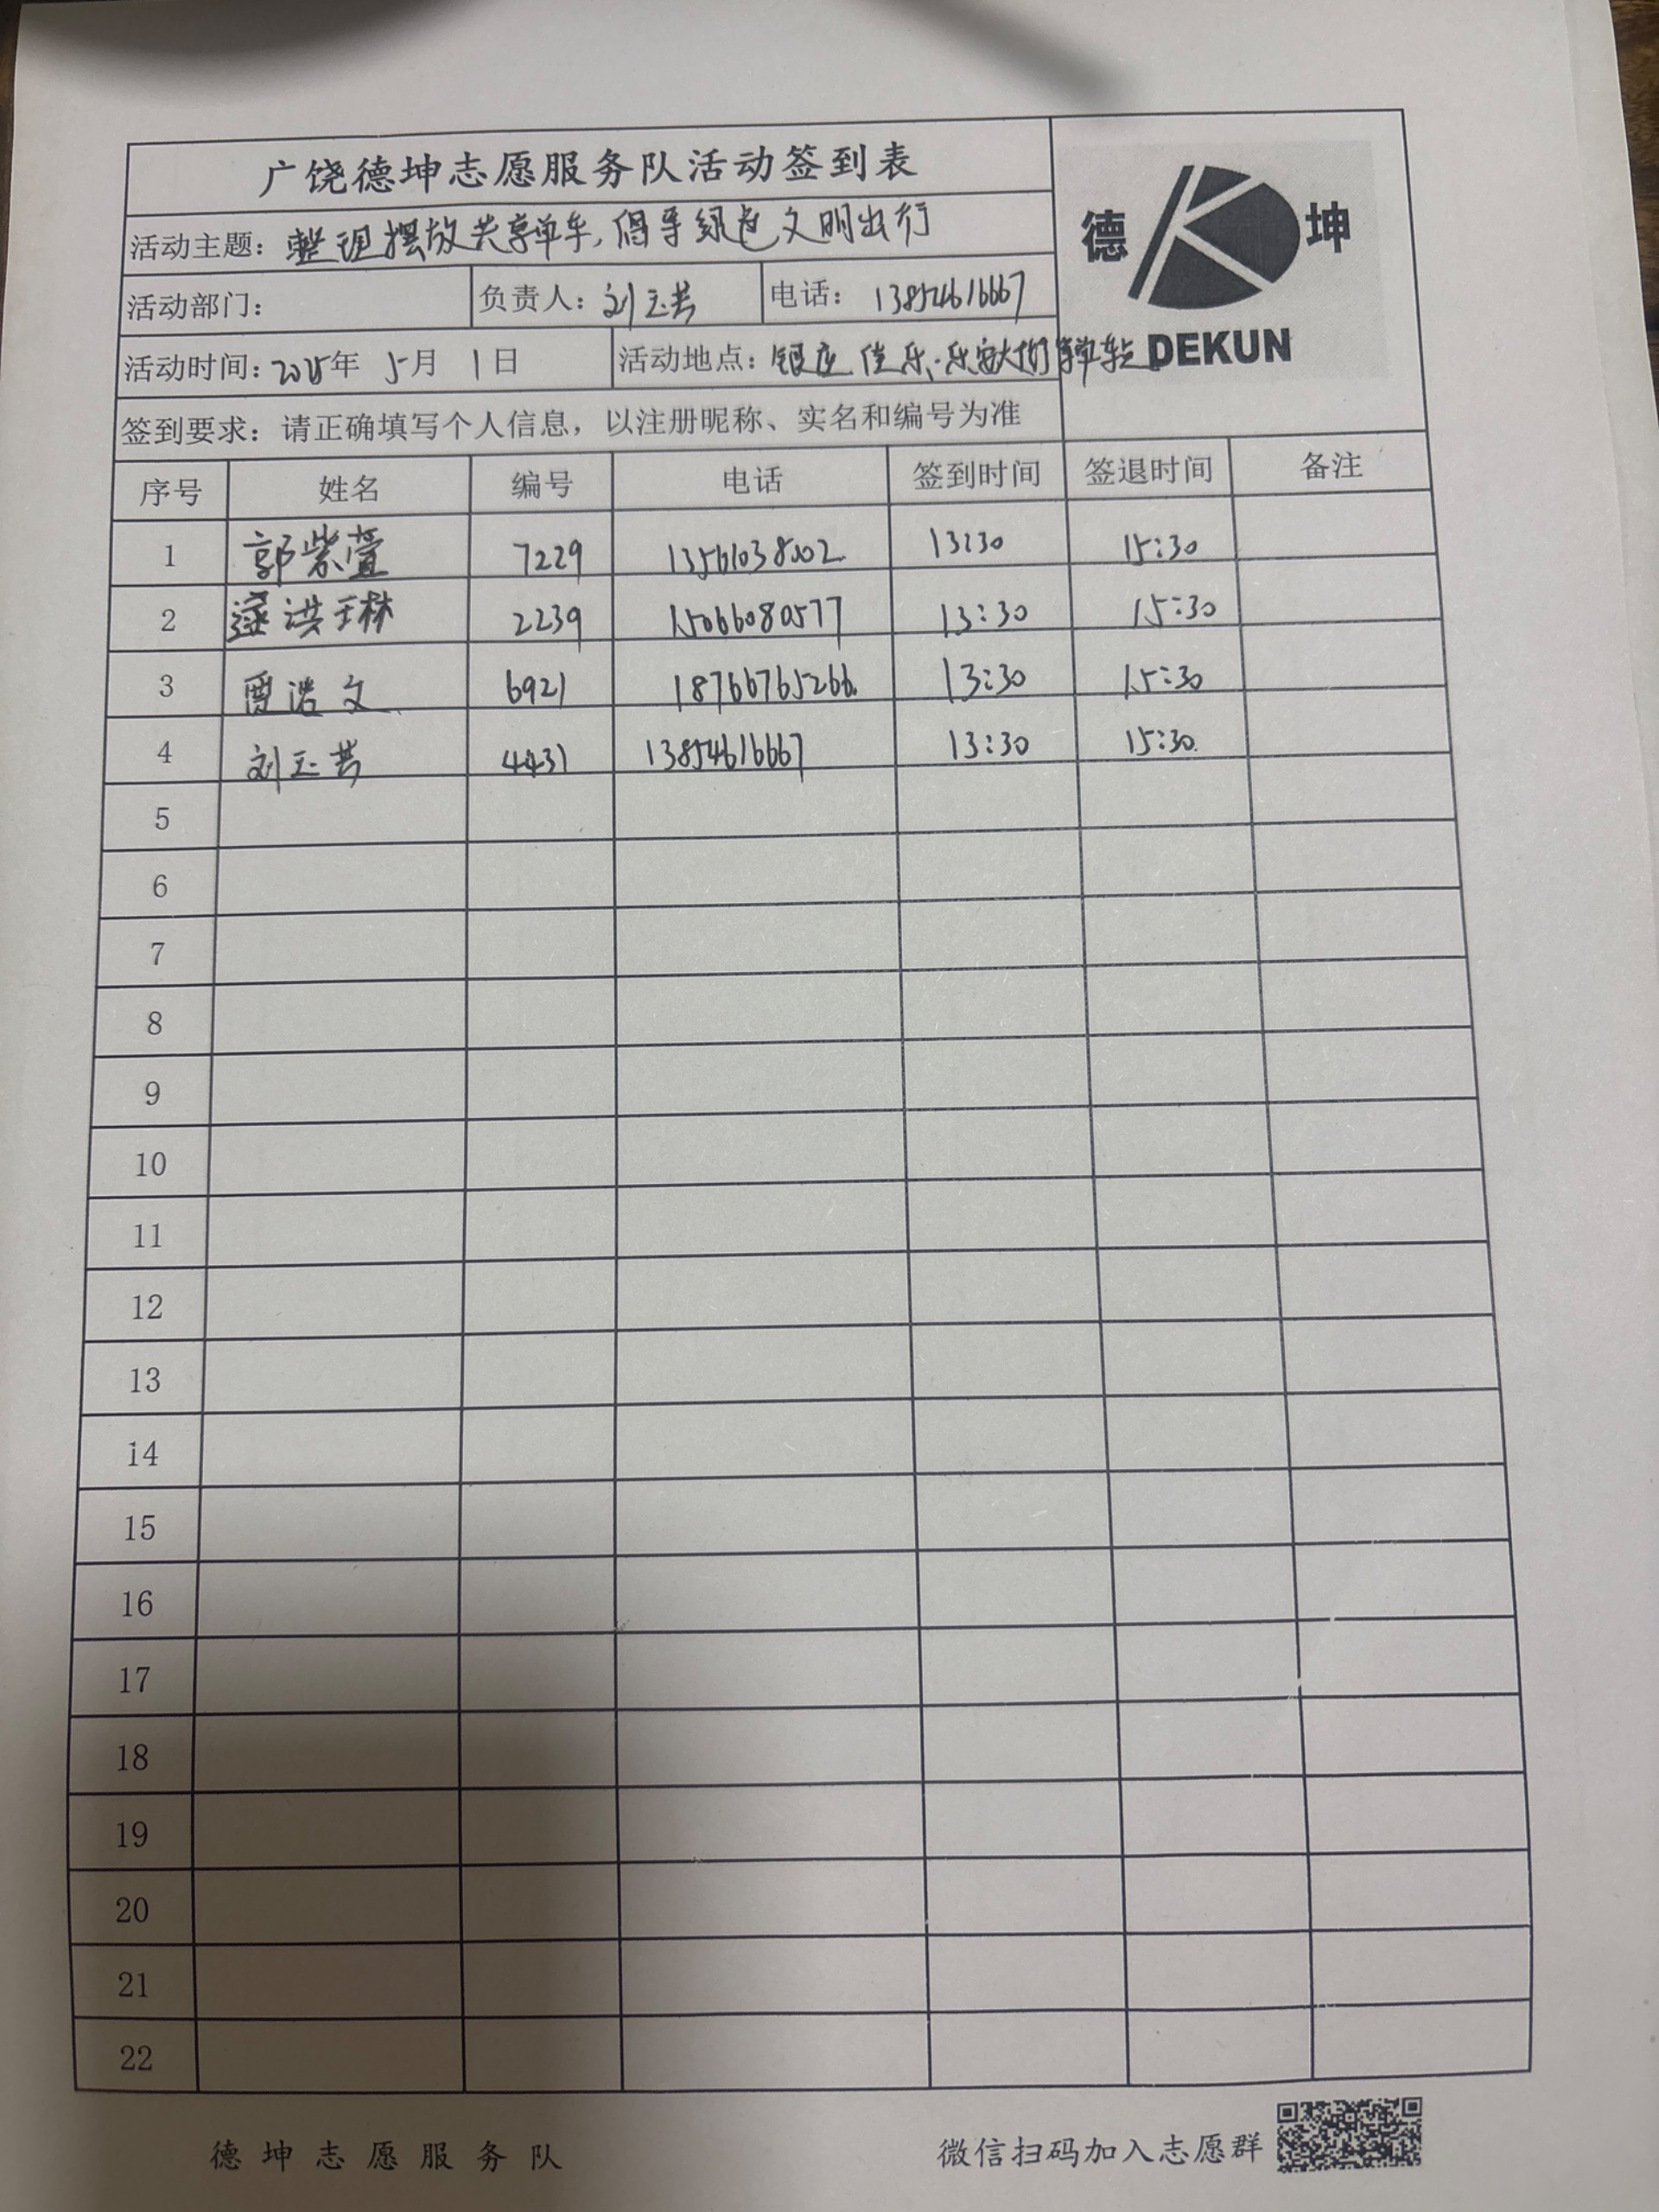 广饶德坤志愿服务队活动签到表
德 坤
DEKUN
活动主题：整理摆放共享单车，倡导绿色文明出行
活动部门： 负责人：刘玉芸 电话：13854616667
活动时间：2025年 5月 1日 活动地点：银座佳乐·乐安大街
签到要求：请正确填写个人信息，以注册昵称、实名和编号为准
序号 姓名 编号 电话 签到时间 签退时间 备注
1 郭紫萱 7229 13561038002 13:30 15:30
2 2239 15066080577 13:30 15:30
3 贾浩文 6921 18766765266 13:30 15:30
4 刘玉芸 4431 13854616667 13:30 15:30
5
6
7
8
9
10
11
12
13
14
15
16
17
18
19
20
21
22
德坤志愿服务队 微信扫码加入志愿群